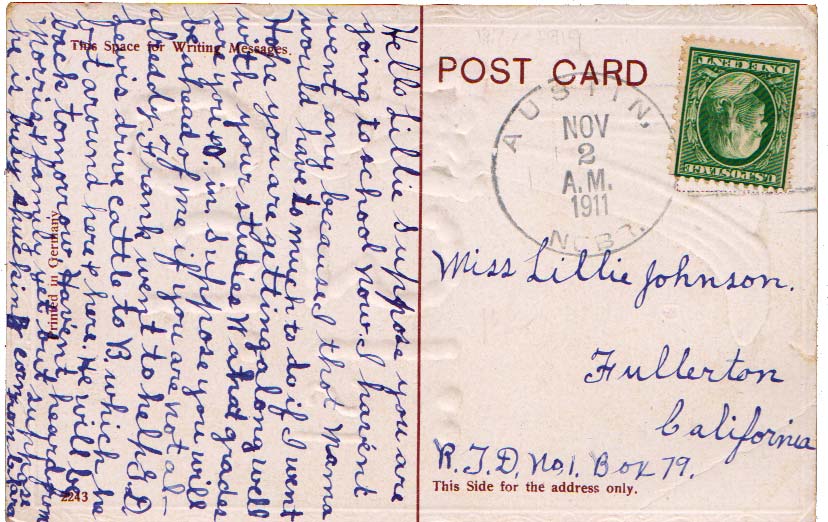 This Space for Writing Messages.
Hello Lillie Suppose you are
going to school now. I havent
went any because I thot Mama
would have to much to do if I went
Hope you are getting along well
with your studies What grades
are you in. Suppose you will
be ahead of me if you are not al-
ready. Frank went to help
Lewis drive cattle to B. which he
but around here & here. He will be
back tomorrow Havent heard from
Morris family yet but suppose
he is busy shuckin corn
from Clara
Printed in Germany
2243
POST CARD
AUSTIN,
NOV
2
A.M.
1911
NEBR.
U.S. POSTAGE
ONE CENT
Miss Lillie Johnson.
Fullerton
California
R.F.D. No1. Box 79.
This Side for the address only.